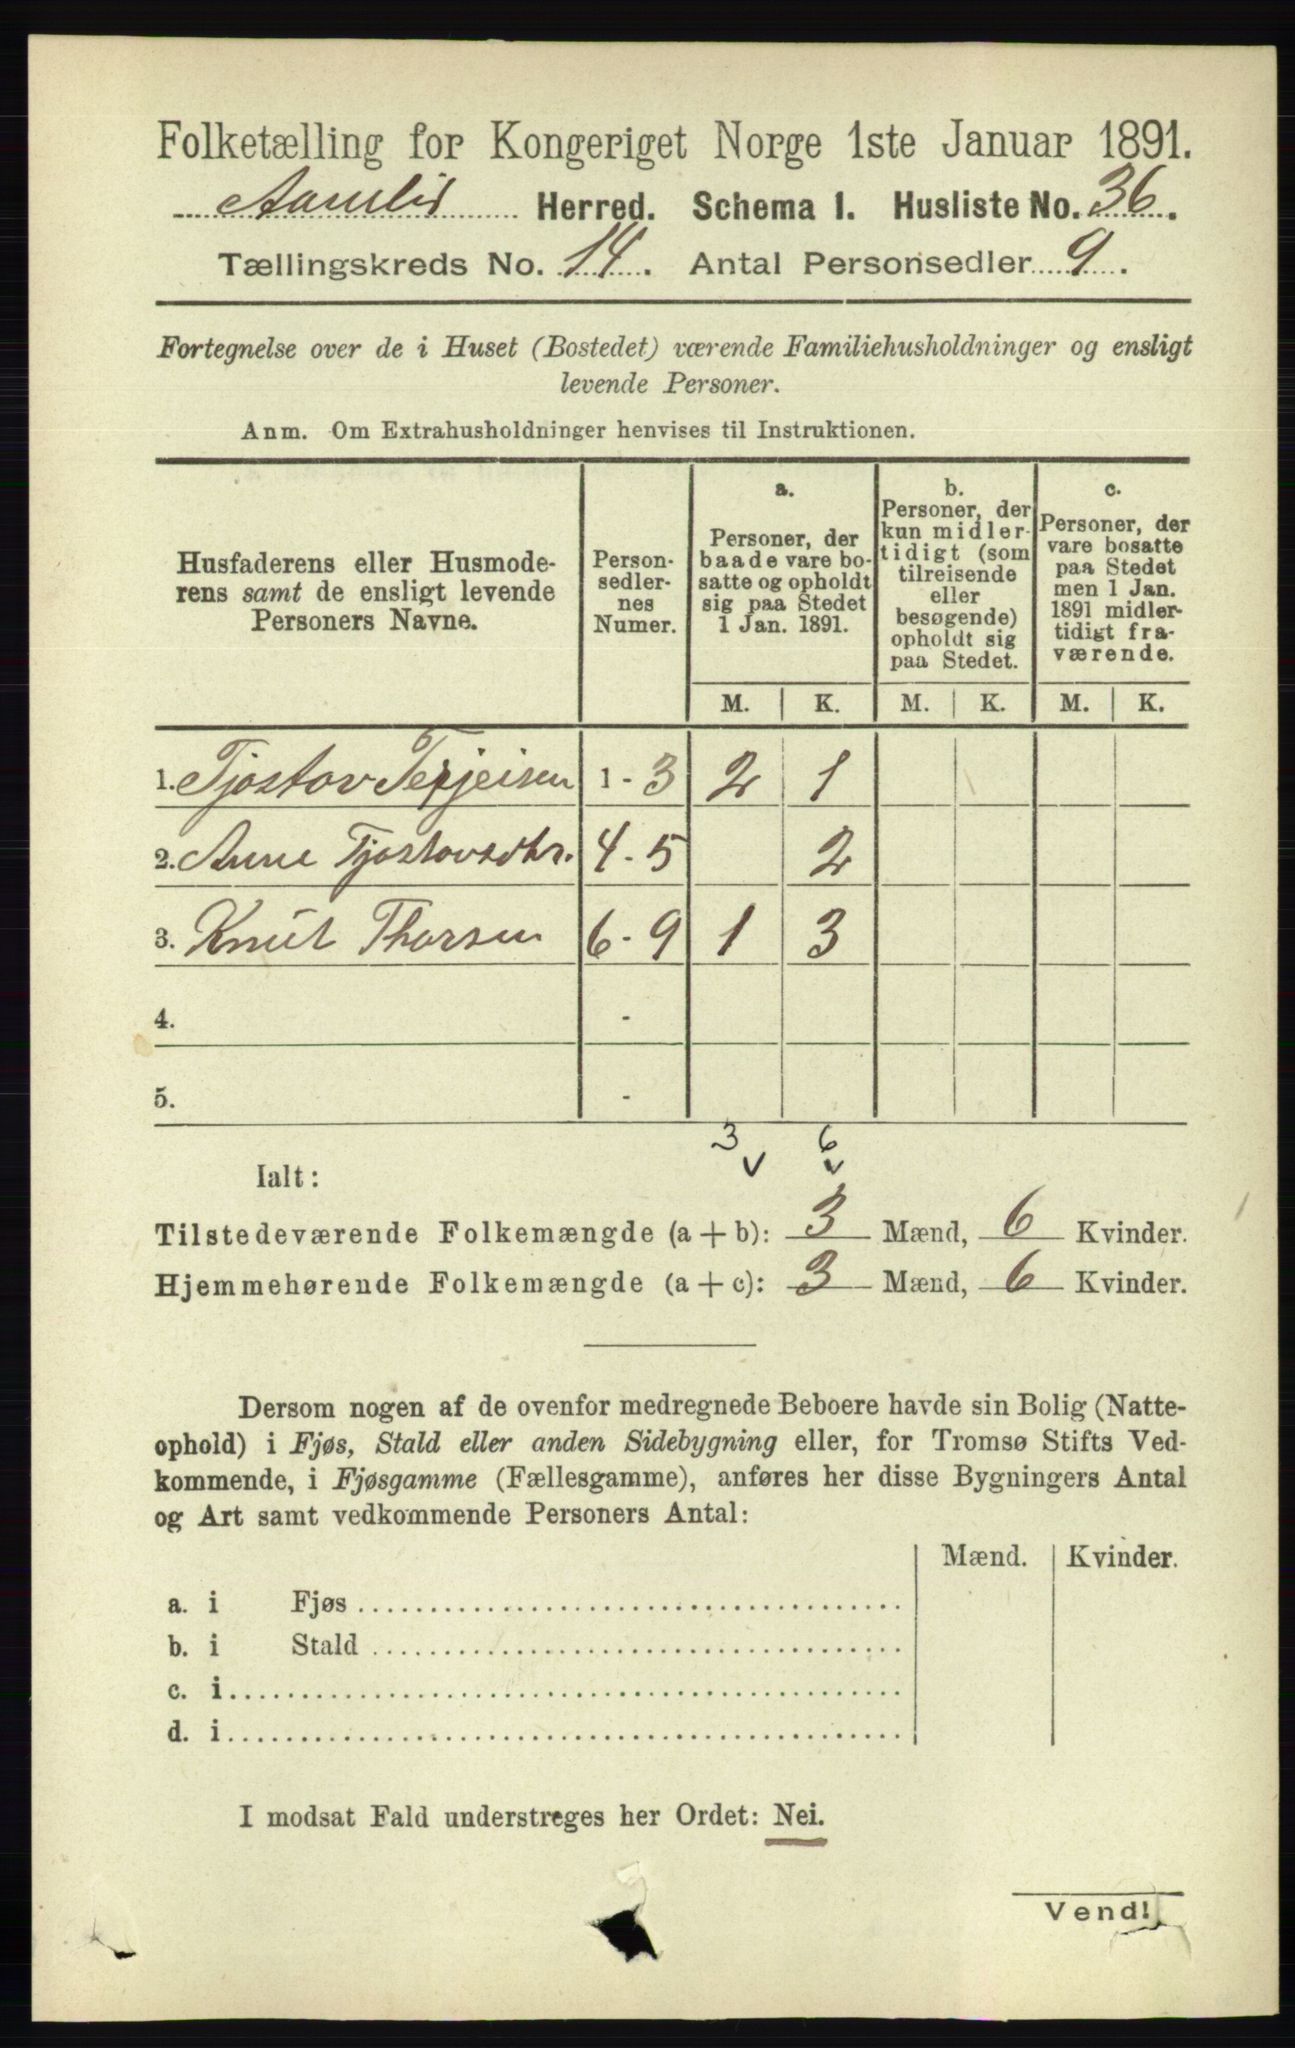 Folketælling for Kongeriget Norge 1ste Januar 1891.
Aamlid Herred. Schema 1. Husliste No. 36.
Tællingskreds No. 14. Antal Personsedler 9.
Fortegnelse over de i Huset (Bostedet) værende Familiehusholdninger og ensligt
levende Personer.
Anm. Om Extrahusholdninger henvises til Instruktionen.
Husfaderens eller Husmode-
rens samt de ensligt levende
Personers Navne.
Person-
sedler-
nes
Numer.
a.
Personer, der
baade vare bo-
satte og opholdt
sig paa Stedet
1 Jan. 1891.
b.
Personer, der
kun midler-
tidigt (som
tilreisende
eller
besøgende)
opholdt sig
paa Stedet.
c.
Personer, der
vare bosatte
paa Stedet
men 1 Jan.
1891 midler-
tidigt fra-
værende.
M. K. M. K. M. K.
1. Tjostov Terjeisen 1 - 3 2 1
2. Anne Tjostovsdtr. 4 - 5 2
3. Knut Thorsen 6 - 9 1 3
4. -
5. -
3 6
v v
Ialt:
Tilstedeværende Folkemængde (a + b): 3 Mænd, 6 Kvinder.
Hjemmehørende Folkemængde (a + c): 3 Mænd, 6 Kvinder.
Dersom nogen af de ovenfor medregnede Beboere havde sin Bolig (Natte-
ophold) i Fjøs, Stald eller anden Sidebygning eller, for Tromsø Stifts Ved-
kommende, i Fjøsgamme (Fællesgamme), anføres her disse Bygningers Antal
og Art samt vedkommende Personers Antal:
Mænd. Kvinder.
a. i Fjøs
b. i Stald
c. i
d. i
I modsat Fald understreges her Ordet: Nei.
Vend!